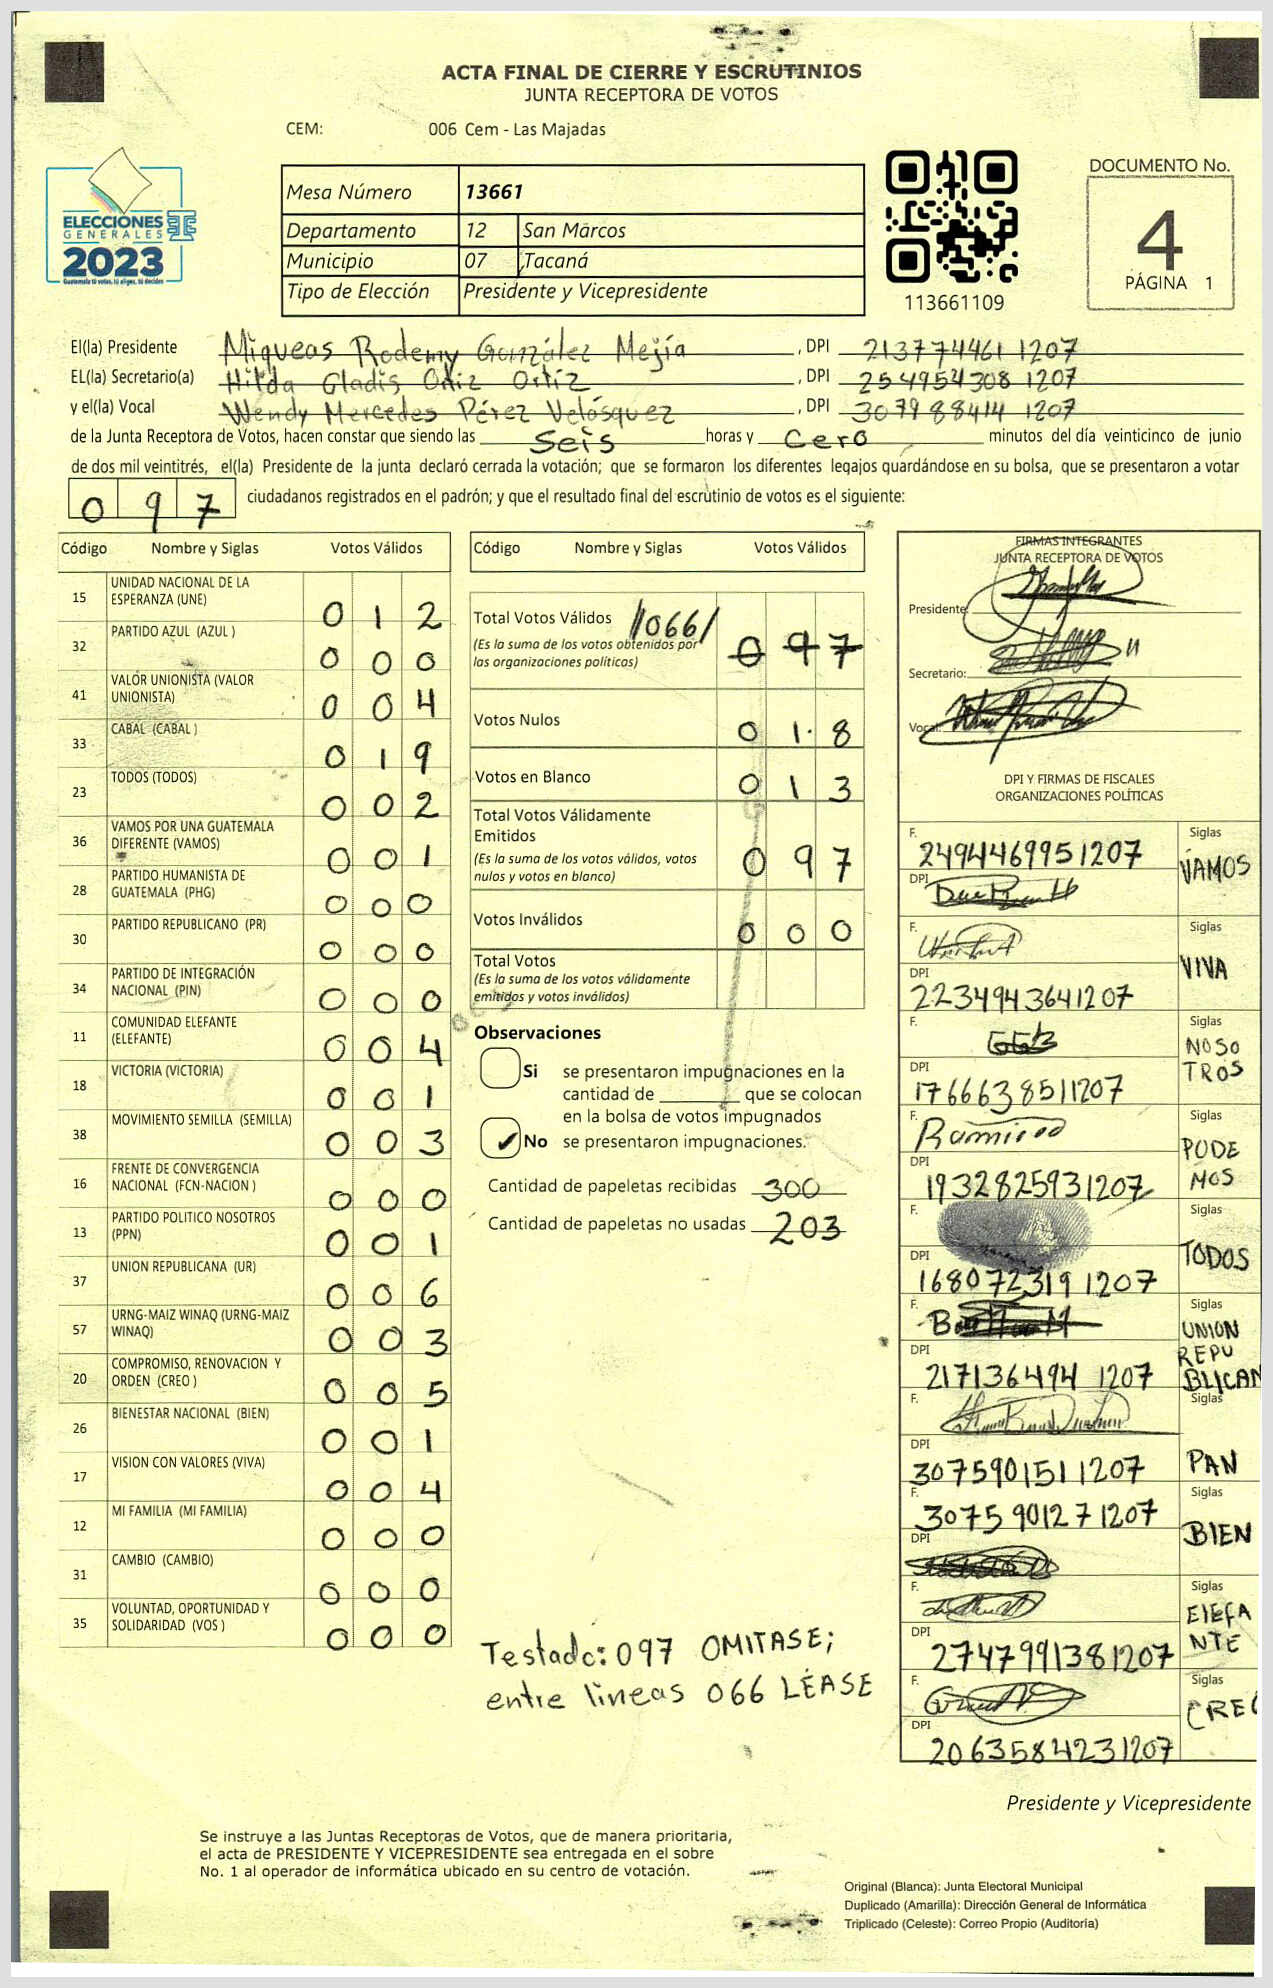 ACTA FINAL DE CIERRE Y ESCRUTINIOS
JUNTA RECEPTORA DE VOTOS
CEM: 006 Cem - Las Majadas
ELECCIONES
GENERALES
2023
Guatemala tú votas, tú eliges, tú decides
Mesa Número 13661
Departamento 12 San Marcos
Municipio 07 Tacaná
Tipo de Elección Presidente y Vicepresidente
113661109
DOCUMENTO No.
4
PÁGINA 1
El(la) Presidente Miqueas Rodemy González Mejía , DPI 213774461 1207
EL(la) Secretario(a) Hilda Gladis Ortiz Ortíz , DPI 254954308 1207
y el(la) Vocal Wendy Mercedes Pérez Velásquez , DPI 307988414 1207
de la Junta Receptora de Votos, hacen constar que siendo las Seis horas y cero minutos del día veinticinco de junio
de dos mil veintitrés, el(la) Presidente de la junta declaró cerrada la votación; que se formaron los diferentes legajos guardándose en su bolsa, que se presentaron a votar
097 ciudadanos registrados en el padrón; y que el resultado final del escrutinio de votos es el siguiente:
Código Nombre y Siglas Votos Válidos
15 UNIDAD NACIONAL DE LA ESPERANZA (UNE) 0 1 2
32 PARTIDO AZUL (AZUL ) 0 0 0
41 VALOR UNIONISTA (VALOR UNIONISTA) 0 0 4
33 CABAL (CABAL ) 0 1 9
23 TODOS (TODOS) 0 0 2
36 VAMOS POR UNA GUATEMALA DIFERENTE (VAMOS) 0 0 1
28 PARTIDO HUMANISTA DE GUATEMALA (PHG) 0 0 0
30 PARTIDO REPUBLICANO (PR) 0 0 0
34 PARTIDO DE INTEGRACIÓN NACIONAL (PIN) 0 0 0
11 COMUNIDAD ELEFANTE (ELEFANTE) 0 0 4
18 VICTORIA (VICTORIA) 0 0 1
38 MOVIMIENTO SEMILLA (SEMILLA) 0 0 3
16 FRENTE DE CONVERGENCIA NACIONAL (FCN-NACION ) 0 0 0
13 PARTIDO POLITICO NOSOTROS (PPN) 0 0 1
37 UNION REPUBLICANA (UR) 0 0 6
57 URNG-MAIZ WINAQ (URNG-MAIZ WINAQ) 0 0 3
20 COMPROMISO, RENOVACION Y ORDEN (CREO ) 0 0 5
26 BIENESTAR NACIONAL (BIEN) 0 0 1
17 VISION CON VALORES (VIVA) 0 0 4
12 MI FAMILIA (MI FAMILIA) 0 0 0
31 CAMBIO (CAMBIO) 0 0 0
35 VOLUNTAD, OPORTUNIDAD Y SOLIDARIDAD (VOS ) 0 0 0
Código Nombre y Siglas Votos Válidos
Total Votos Válidos //066/ 0 9 7
(Es la suma de los votos obtenidos por
las organizaciones políticas)
Votos Nulos 0 1 8
Votos en Blanco 0 1 3
Total Votos Válidamente
Emitidos
(Es la suma de los votos válidos, votos
nulos y votos en blanco) 0 9 7
Votos Inválidos 0 0 0
Total Votos
(Es la suma de los votos válidamente
emitidos y votos inválidos)
Observaciones
Si se presentaron impugnaciones en la
cantidad de ________ que se colocan
en la bolsa de votos impugnados
✔ No se presentaron impugnaciones.
Cantidad de papeletas recibidas 300
Cantidad de papeletas no usadas 203
Testado: 097 OMITASE;
entre lineas 066 LÉASE
FIRMAS INTEGRANTES
JUNTA RECEPTORA DE VOTOS
Presidente:
Secretario:
Vocal:
DPI Y FIRMAS DE FISCALES
ORGANIZACIONES POLÍTICAS
F. 2494469951207 Siglas VAMOS
DPI
F. Siglas VIVA
DPI 2234943641207
F. Siglas NOSOTROS
DPI 1766638511207
F. Ramiro Siglas PODEMOS
DPI 1932825931207
F. Siglas TODOS
DPI 1680723191207
F. Siglas UNION REPUBLICAN
DPI 217136494 1207
F. Siglas PAN
DPI 3075901511207
F. 3075901271207 Siglas BIEN
DPI
F. Siglas ElEFANTE
DPI 2747991381207
F. Siglas CREO
DPI 2063584231207
Presidente y Vicepresidente
Se instruye a las Juntas Receptoras de Votos, que de manera prioritaria,
el acta de PRESIDENTE Y VICEPRESIDENTE sea entregada en el sobre
No. 1 al operador de informática ubicado en su centro de votación.
Original (Blanca): Junta Electoral Municipal
Duplicado (Amarilla): Dirección General de Informática
Triplicado (Celeste): Correo Propio (Auditoría)